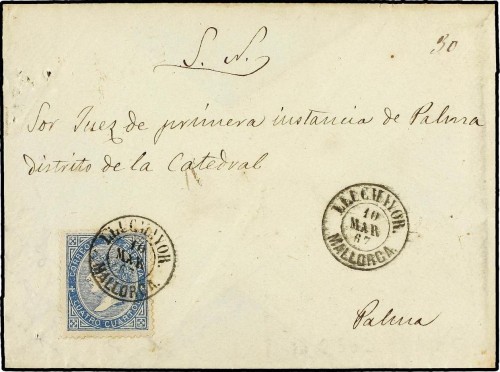 S. N.
30
Sor Juez de primera instancia de Palma
distrito de la Catedral
LLUCHMAYOR.
10
MAR
67
MALLORCA.
LLUCHMAYOR.
10
MAR
67
MALLORCA.
CORREOS
CUATRO CUARTOS
Palma